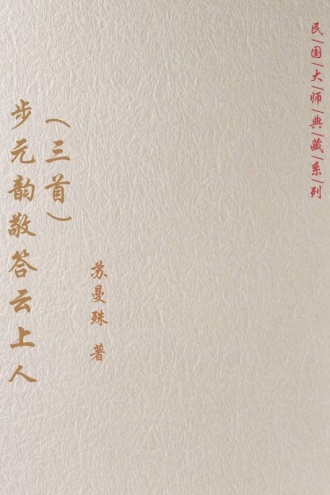 民|国|大|师|典|藏|系|列
步元韵敬答云上人
（三首）
苏曼殊 著